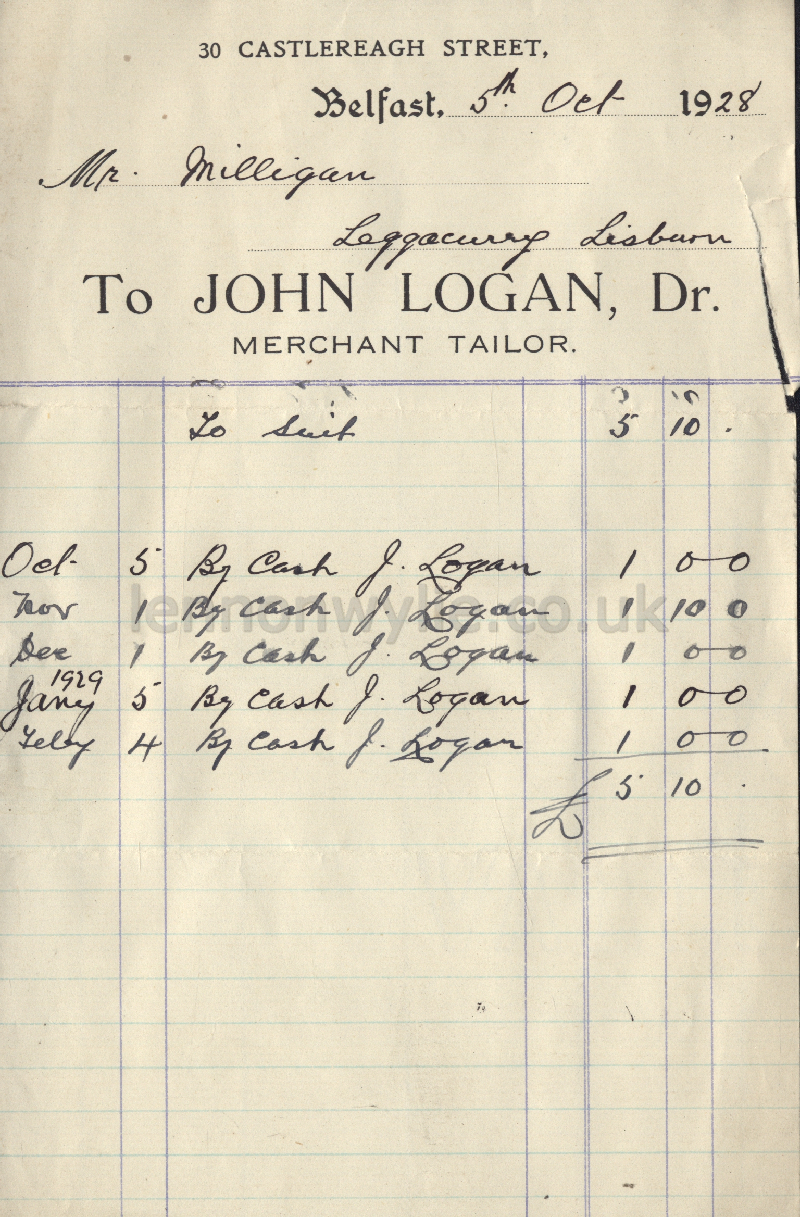 30 CASTLEREAGH STREET,
Belfast, 5th. Oct 1928
Mr. Milligan
Leggacurry Lisburn
To JOHN LOGAN, Dr.
MERCHANT TAILOR.
To Suit 5 10 .
Oct 5 By Cash J. Logan 1 0 0
Nov 1 By Cash J. Logan 1 10 0
Dec 1 By Cash J. Logan 1 0 0
1929
Jany 5 By Cash J. Logan 1 0 0
Feby 4 By Cash J. Logan 1 0 0
£ 5 10 .
lennonwylie.co.uk